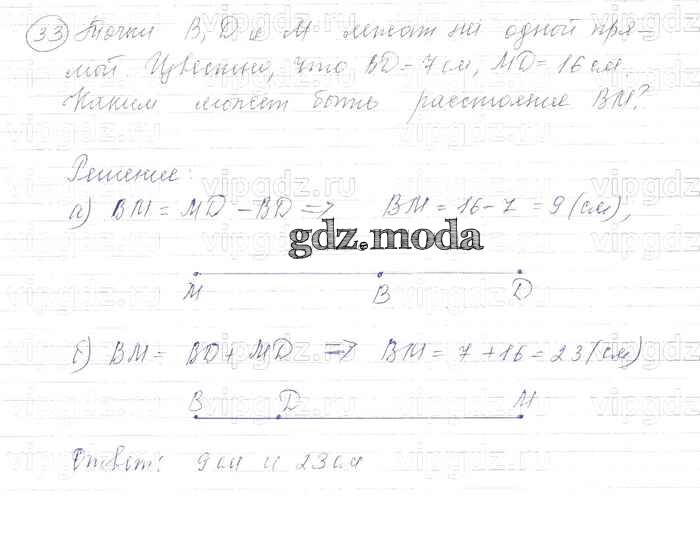 33 Точки B, D и M лежат на одной пря-
мой. Известно, что BD = 7 см, MD = 16 см.
Каким может быть расстояние BM?
Решение:
а) BM = MD - BD => BM = 16 - 7 = 9 (см),
gdz.moda
M B D
б) BM = BD + MD => BM = 7 + 16 = 23 (см)
B D M
Ответ: 9 см и 23 см
vipgdz.ru